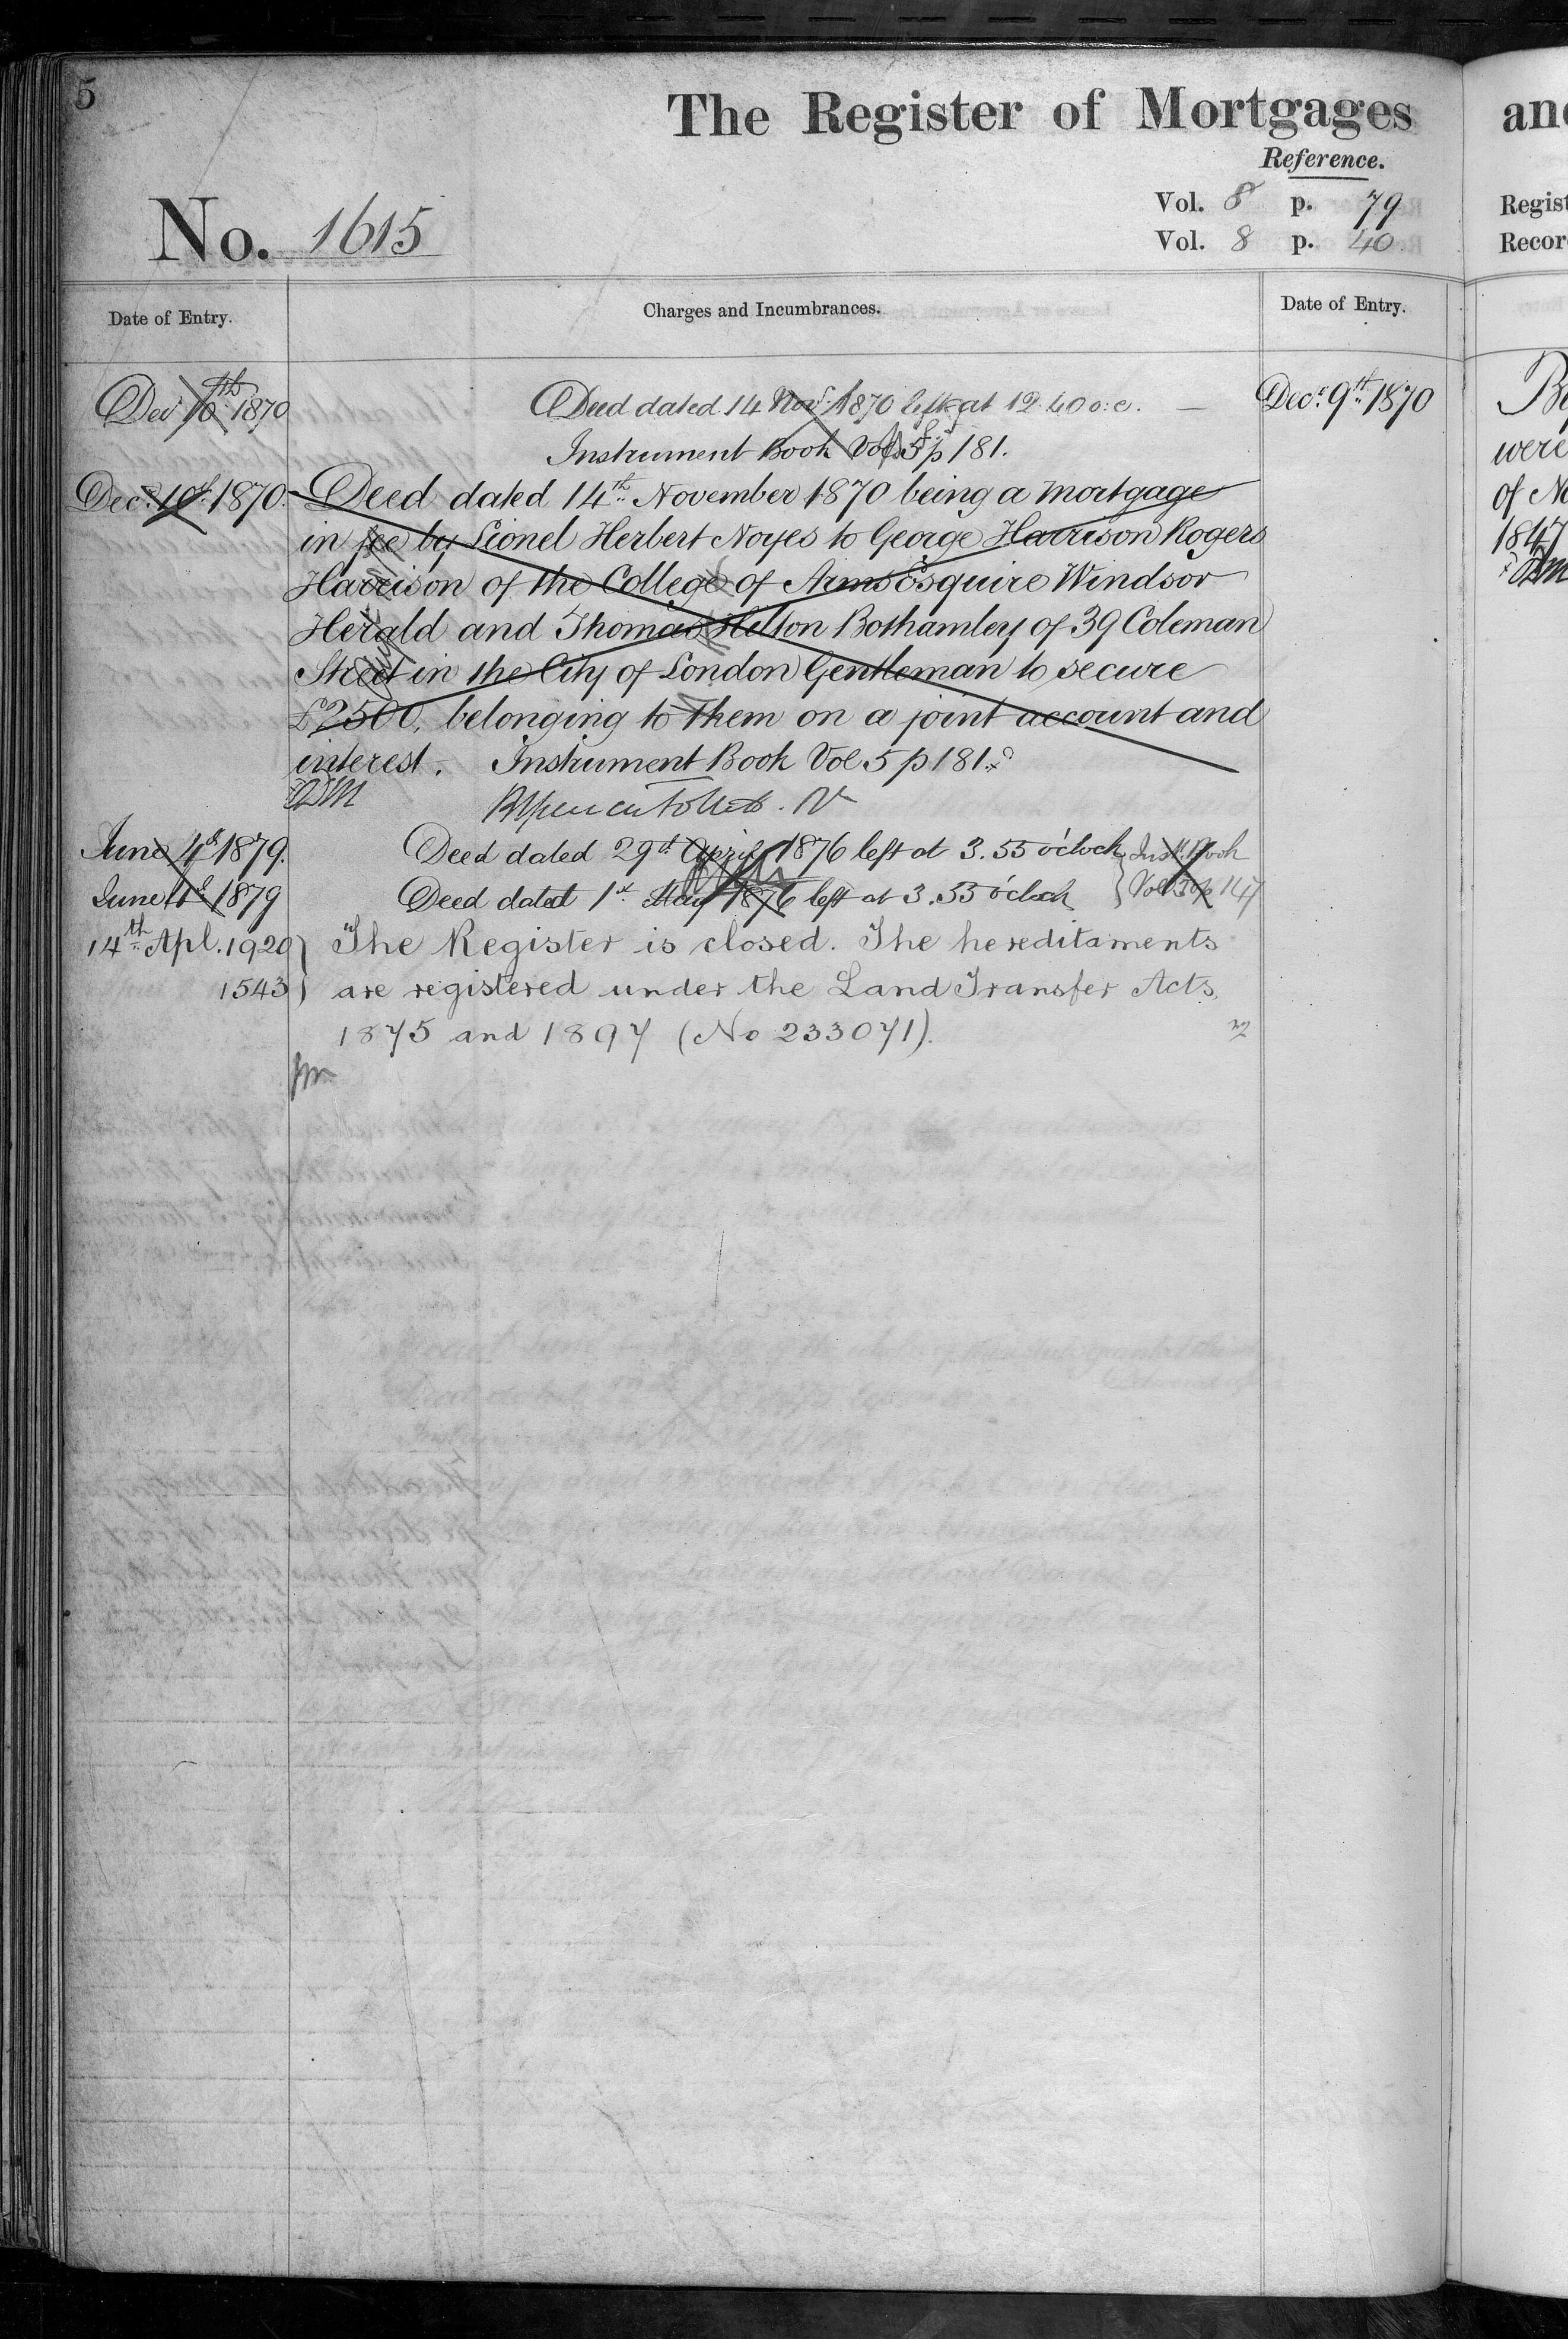 5
The Register of Mortgages
Reference.
Vol. 8 p. 79
No. 1615
Vol. 8 p. 40
Date of Entry.
Charges and Incumbrances.
Date of Entry.
Dec 10th 1870
Deed dated 14 Novr. 1870 left at 12.40 o.c. —
Decr. 9th 1870
Instrument Book Vol 5 p 181.
Decr. 10th 1870.
Deed dated 14th November 1870 being a Mortgage
in fee by Lionel Herbert Noyes to George Harrison Rogers
Harrison of the College of Arms Esquire Windsor
Herald and Thomas Hilton Bothamley of 39 Coleman
Street in the City of London Gentleman to secure
£2500, belonging to them on a joint account and
interest. Instrument Book Vol 5 p 181.
June 4th 1879.
Deed dated 29th April 1876 left at 3.55 o'clock
Inst. Book
June 4th 1879
Deed dated 1st May 1876 left at 3.55 o'clock
14th Apl. 1920
The Register is closed. The hereditaments
1543
are registered under the Land Transfer Acts
1875 and 1897 (No 233071).
and
Regist
Recor
were
of No
1847